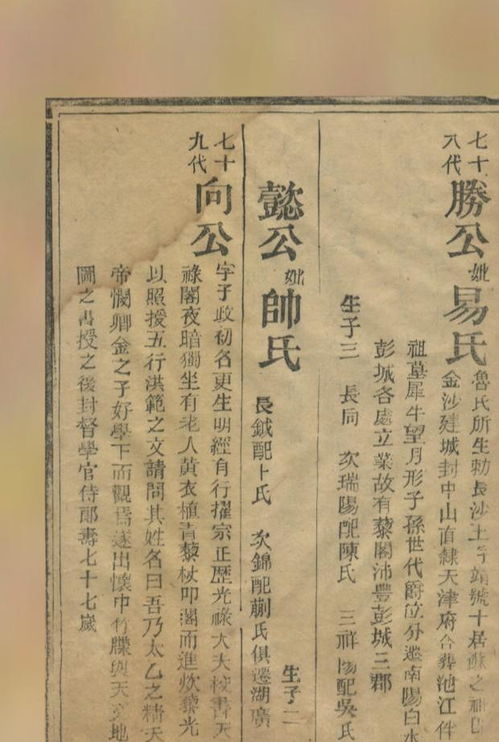 七十八代
勝公妣易氏
魯氏所生勅長沙土
金沙建城封中山直隷天津府合葬池江件
祖墓犀牛望月形子孫世代爵位分遷南陽白水
彭城各處立業故有藜閣沛豐彭城三郡
生子三 長向 次瑞陽配陳氏 三祥陽配吳氏
懿公妣帥氏
長鉞配卜氏 次錦配蒯氏俱遷湖廣
生子二
七十九代
向公
字子政初名更生明經有行擢宗正歷光祿大夫校書天
祿閣夜暗獨坐有老人黃衣植青藜杖叩閣而進炊藜光
以照授五行洪範之文請問其姓名曰吾乃太乙之精天
帝憫卯金之子好學下而觀焉遂出懷中竹牒與天文地
圖之書授之後封督學官侍郎壽七十七歲